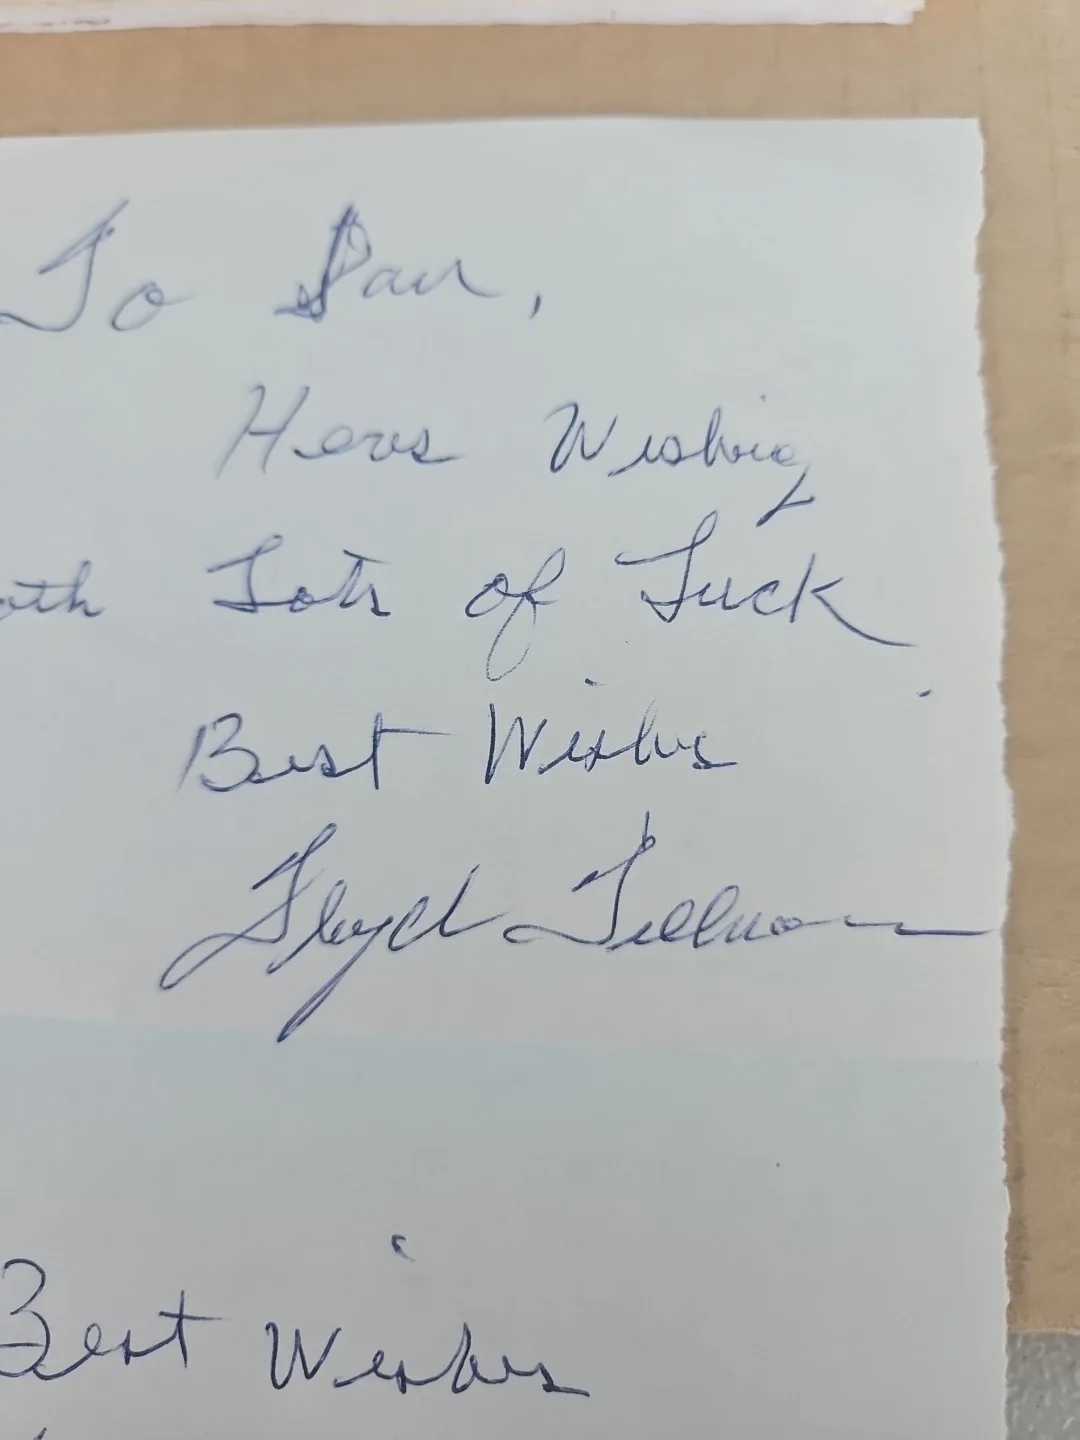 To Dan,
Heres Wishing
oth Lots of Luck
Best Wishes
Floyd Tillman
Best Wishes